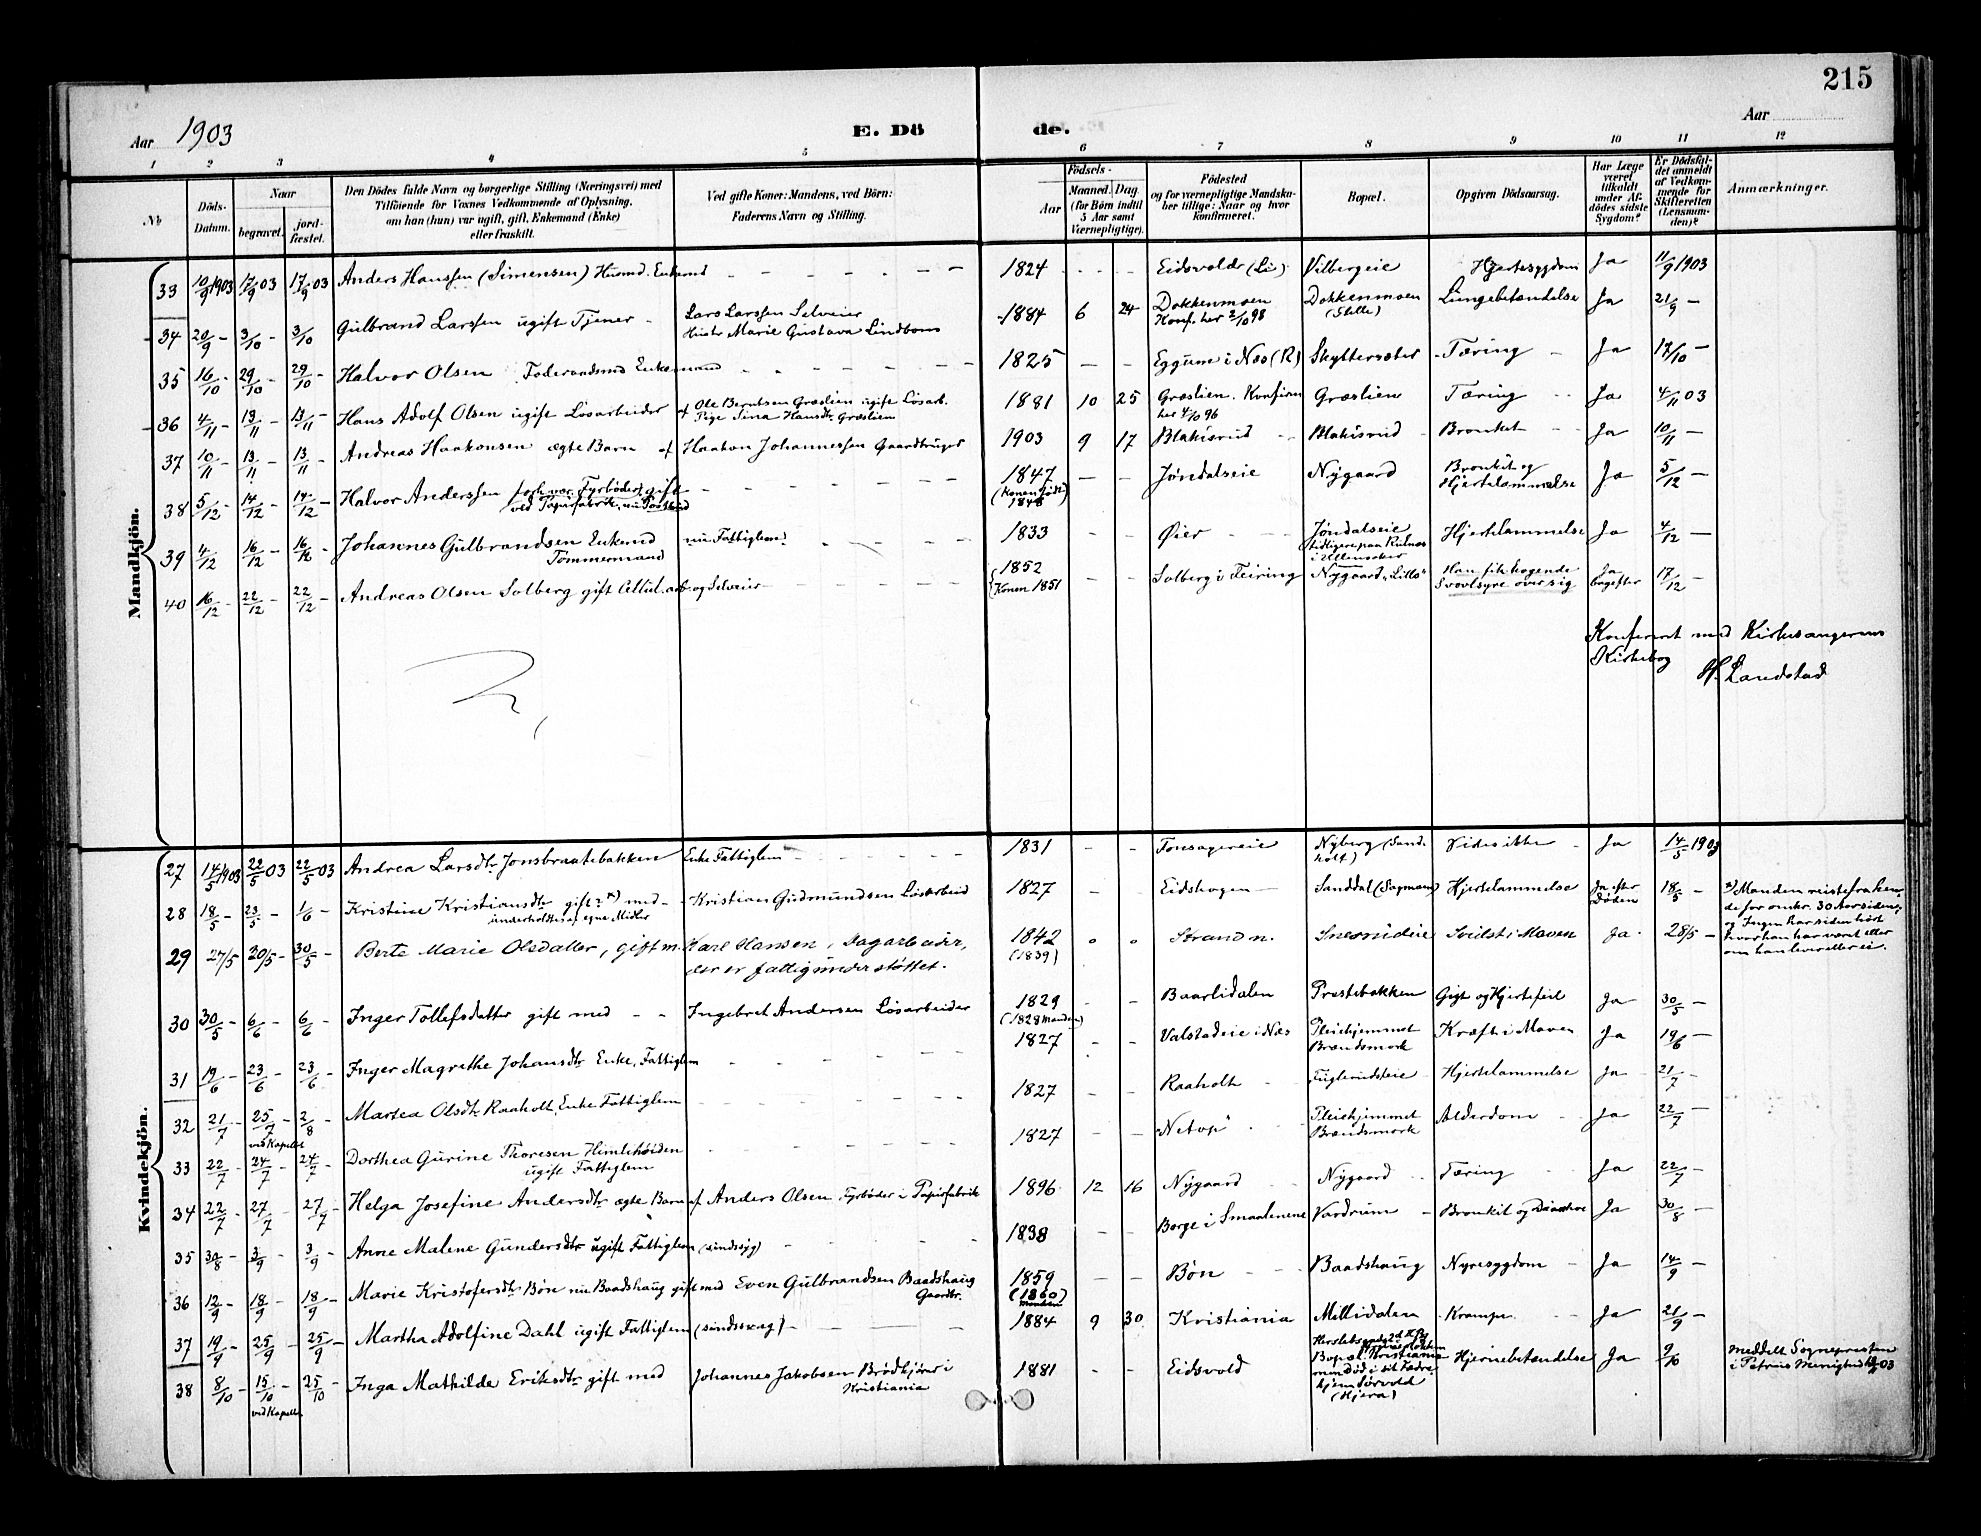 215
Aar 1903
E. Dö de.
Aar
1 2 3 4 5 6 7 8 9 10 11 12
No
Döds-Datum.
Naar
begravet.
jord-fæstet.
Den Dödes fulde Navn og borgerlige Stilling (Næringsvei) med
Tilföiende for Voxnes Vedkommende af Oplysning,
om han (hun) var ugift, gift, Enkemand (Enke)
eller fraskilt.
Ved gifte Koner: Mandens, ved Börn:
Faderens Navn og Stilling.
Födsels-
Aar
Maaned. Dag
(for Börn indtil
5 Aar samt
Værnepligtige).
Födested
og for værnepligtige Mandska-
ber tillige: Naar og hvor
konfirmeret.
Bopæl.
Opgiven Dödsaarsag.
Har Læge
været
tilkaldt
under Af-
dödes sidste
Sygdom?
Er Dödsfal-
det anmeldt
af Vedkom-
mende for
Skifteretten
(Lensman-
den)?
Anmærkninger.
Mandkjön.
33 10/9 1903 17/9 03 17/9 03 Anders Hanssen (Simensen) Husmd. Enkemd 1824 Eidsvold (Li) Vilbergeie Hjertesygdom Ja 11/9 1903
34 20/9 3/10 3/10 Gulbrand Larssen ugift Tjener Lars Larssen Selveier
Hustr Marie Gustava Lindbom 1884 6 24 Dokkenmoen
Konf. her 2/10 98 Dokkenmoen
(Stille) Lungebetændelse Ja 21/9
35 16/10 29/10 29/10 Halvor Olsen Foderaadsmd Enkemand 1825 Eggum i Næs (R) Skyttersæter Tæring Ja 18/10
36 4/11 13/11 13/11 Hans Adolf Olsen ugift Løsarbeider af Ole Berntsen Græslien ugift Løsarb.
Pige Sina Hansdtr Græslien 1881 10 25 Græslien. Konfirm
her 4/10 96 Græslien Tæring Ja 4/11 03
37 10/11 13/11 13/11 Andreas Haakonsen ægte Barn af Haakon Johannessen Gaardbruger 1903 9 17 Blakisrud Blakisrud Bronkit Ja 10/11
38 5/12 14/12 14/12 Halvor Anderssen forh.vær. Fyrbøder, gift
ved Papirfabrik, nu 1847
(Konen født
1848 Jøndalseie Nygaard Bronkit og
Hjertelammelse Ja 5/12
39 4/12 16/12 16/12 Johannes Gulbrandsen Enkemd
Tømmermand nu Fattiglem 1833 Øier Jøndalseie
tidligere paa
i Ullensaker Hjertelammelse Ja 4/12
40 16/12 22/12 22/12 Andreas Olsen Solberg gift Cellul. arb. og Selveier 1852
(Konen 1851 Solberg i Feiring Nygaard "Lillo" Han fik kogende
Svovlsyre over sig Ja
bagefter 17/12
Konfereret med Kirkesangerens
Kirkebog
H. Landstad
Kvindekjön.
27 14/5 1903 22/5 03 22/5 03 Andrea Larsdtr Jonsbraatebakken Enke Fattiglem 1831 Tonsagereie Nyberg (Sand-
holt) Vides ikke Ja 14/5 1903
28 18/5 23/5 1/6 Kristine Kristiansdtr gift? x) med
underholdtes af egne Midler Kristian Gudmundsen Løsarbeid 1827 Eidshagen Sanddal (Sagmoen) Hjertelammelse Ja efter
Døden 18/5 x) Manden reiste fra hen-
de for omkr. 30 Aar siden,
og Ingen har siden hørt
hvor han har været eller
om han lever eller ei.
29 27/5 30/5 30/5 Berte Marie Olsdatter, gift m. Karl Hansen, Dagarbeider,
der er fattigunderstøttet. 1842
(1839) Strand n. Snesrudeie Svulst i Maven Ja 28/5
30 30/5 6/6 6/6 Inger Tollefsdatter gift med Ingebret Andersen Løsarbeider 1829
(1828 Manden) Baarlidalen Præstebakken Gigt og Hjertefeil Ja 30/5
31 19/6 23/6 23/6 Inger Magrethe Johansdtr Enke, Fattiglem 1827 Valstadeie i Næs Pleiehjemmet
Brændsmork Kræft i Maven Ja 19/6
32 21/7 25/7 2/8 Martea Olsdtr Raaholt, Enke Fattiglem 1827 Raaholt Fuglerudseie Hjertelammelse Ja 21/7
ved Kapellet
33 22/7 24/7 24/7 Dorthea Gurine Thoresen Himlehøiden
ugift Fattiglem 1827 "Netop" Pleiehjemmet
Brændsmork Alderdom Ja 22/7
34 22/7 27/7 27/7 Helga Josefine Andersdtr ægte Barn af Anders Olsen, Fyrbøder i Papirfabrik 1896 12 16 Nygaard Nygaard Tæring Ja 22/7
35 30/8 3/9 3/9 Anne Malene Gundersdtr ugift Fattiglem (sindssyg) 1838 Borge i Smaalenene Vardrum Bronkit og Diarrhoe Ja 30/8
36 12/9 18/9 18/9 Marie Kristofersdtr Bøn nu Baadshaug gift med Even Gulbrandsen Baadshaug
Gaardbr. 1859
(1860)
Manden Bøn Baadshaug Nyresygdom Ja 14/9
37 19/9 25/9 25/9 Martha Adolfine Dahl ugift Fattiglem (sindssvag) 1884 9 30 Kristiania Millidalen Krampe Ja 21/9
38 8/10 15/10 25/10 Inga Mathilde Eriksdtr gift med Johannes Jakobsen Brødkjører i
Kristiania 1881 Eidsvold
Bopæl Kristiania
men Død i sit Fædre-
hjem
(Hjera) Hjernebetændelse Ja 9/10 Meddelt Sognepresten
i Petrus Menighed 03
ved Kapellet